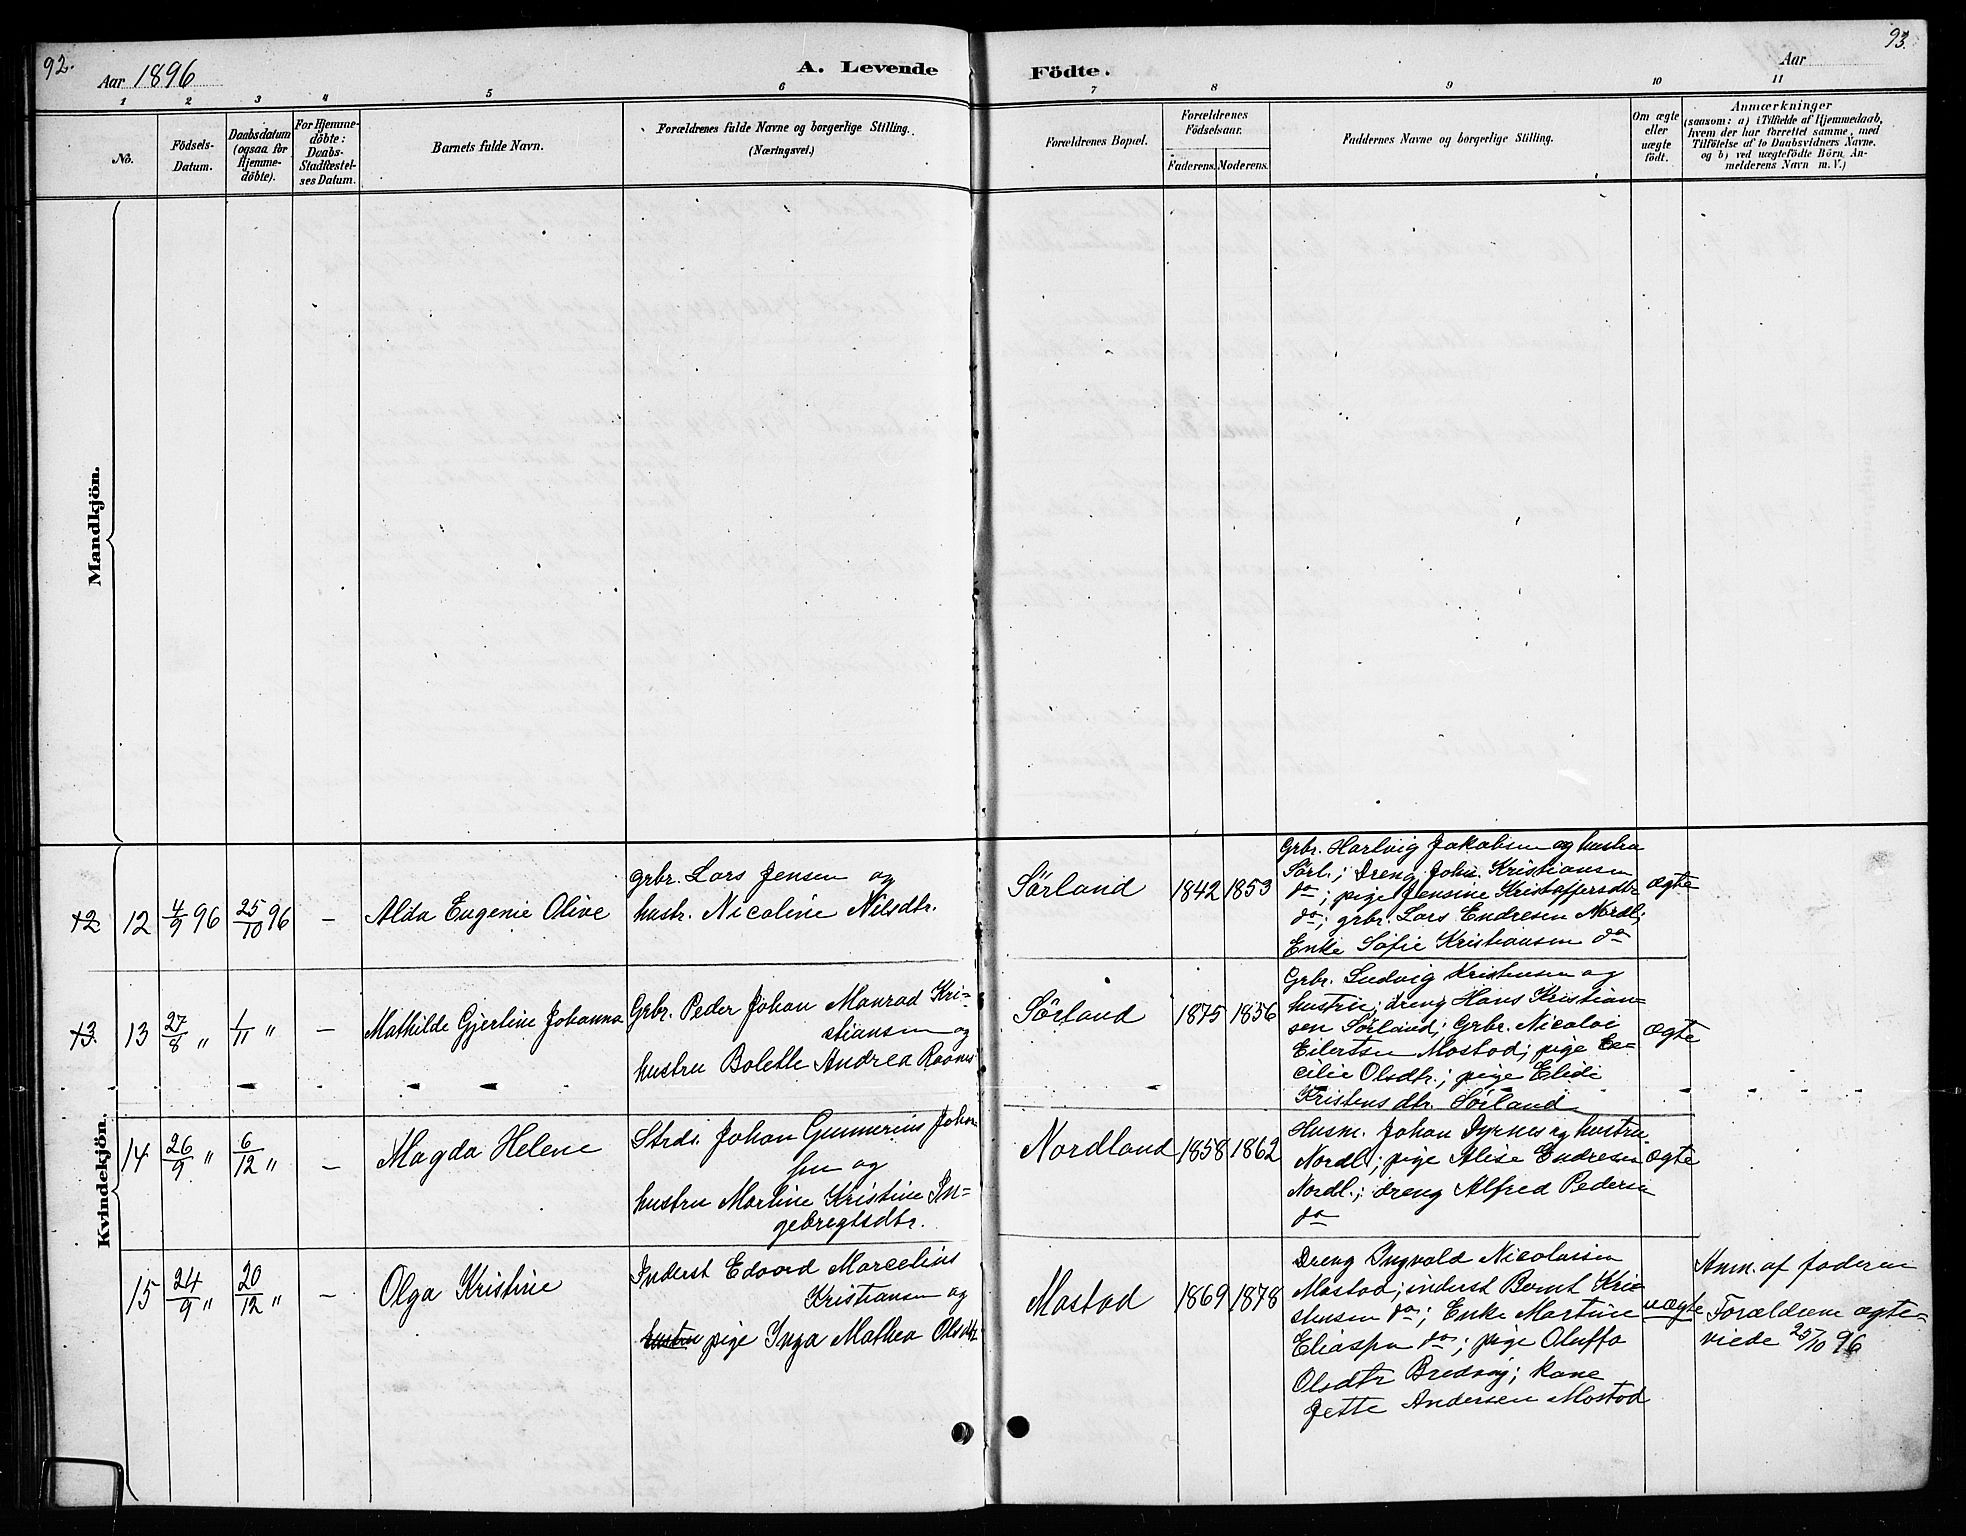 92.
Aar 1896
A. Levende
Födte.
Aar
93.
1 2 3 4 5 6 7 8 9 10 11
No.
Födsels-
Datum.
Daabsdatum
(ogsaa for
Hjemme-
döbte).
For Hjemme-
döbte:
Daabs-
Stadfæstel-
ses Datum.
Barnets fulde Navn.
Forældrenes fulde Navne og borgerlige Stilling.
(Næringsvei.)
Forældrenes Bopæl.
Forældrenes
Födselsaar.
Faderens. Moderens.
Faddernes Navne og borgerlige Stilling.
Om ægte
eller
uægte
født.
Anmærkninger
(saasom: a) i Tilfælde af Hjemmedaab,
hvem der har forrettet samme, med
Tilföielse af to Daabsvidners Navne.
og b) ved uægtefödte Börn, An-
melderens Navn m. V.)
Mandkjön.
Kvindekjön.
12 12 4/9 96 25/10 96 – Alda Eugenie Olive
grbr. Lars Jensen og
hustr. Nicoline Nilsdtr.
Sörland 1842 1853
Grbr. Hartvig Jakobsen og hustru
Sörl.; Dreng Johs. Kristiansen
do; pige Jensine Kristoffersdtr
do; grbr. Lars Endresen Nordl;
Enke Sofie Kristiansen do
Ægte
13. 13 27/8 " 1/11 " – Mathilde Gjertine Johanna
Grbr. Peder Johan Monrad Kri-
stiansen og
hustru Bolette Andrea
Sörland 1875 1856
Grbr. Ludvig Kristensen og
hustru; dreng Hans Kristian-
sen Sörland; Grbr. Nicolai
Eilertsen Mostad; pige Ce-
cilie Olsdtr.; pige Elidi
Kristensdtr. Sörland
Ægte
14 26/9 " 6/12 " – Magda Helene
Strds. Johan Gunnerius Johan
sen og
hustru Martine Kristine In-
gebregtsdtr.
Nordland 1858 1862
Husm. Johan Dyrnes og hustru
Nordl; pige Alise Endresen
Nordl.; dreng Alfred Pedersen
do
Ægte
15 24/9 " 20/12 " – Olga Kristine
Inderst Edvard Marcelius
Kristiansen og
hustru pige Inga Mathea Olsdtr.
Mostad 1869 1878
Dreng Ingvald Nicolaisen
Mostad; inderst Bernt Kri-
stensen do; Enke Martine
Eliasen do; pige Oluffa
Olsdtr Bredvig; kone
Jette Andersen Mostad
uægte
Anm. af faderen
Forældrene ægte-
viede 25/10 96